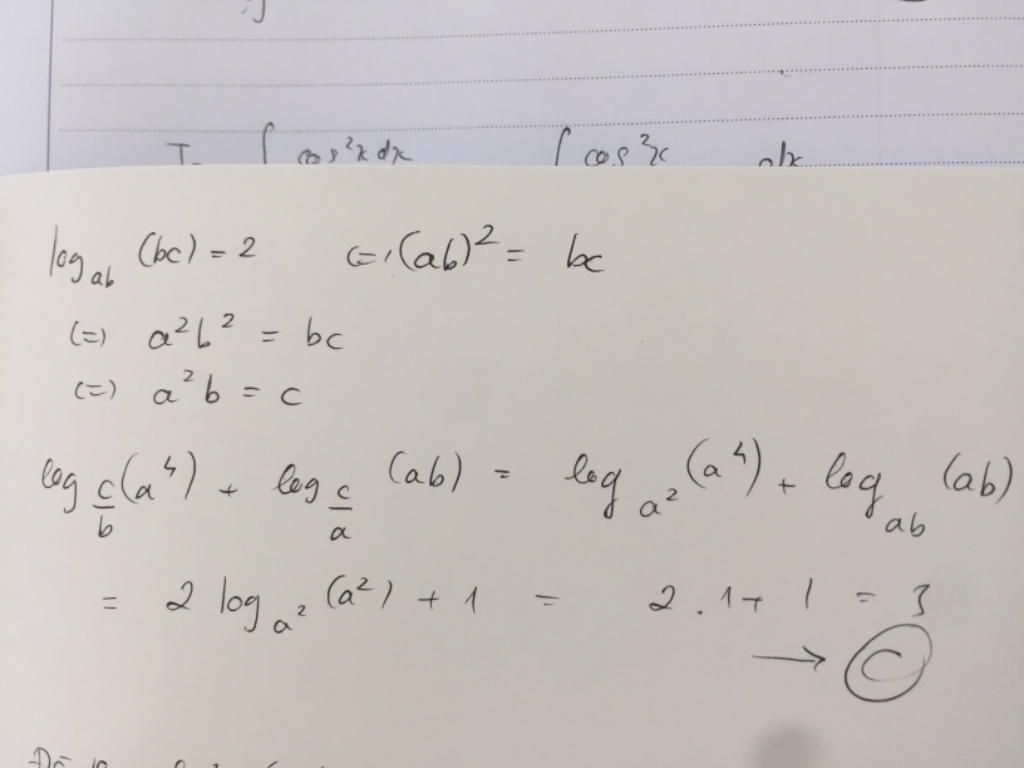 ∫ cos²x dx ∫ cos²x dx
log_{ab} (bc) = 2 (=) (ab)² = bc
(=) a²b² = bc
(=) a²b = c
log_{c/b}(a⁴) + log_{c/a} (ab) = log_{a²} (a⁴) + log_{ab} (ab)
= 2 log_{a²} (a²) + 1 = 2 . 1 + 1 = 3
→ C